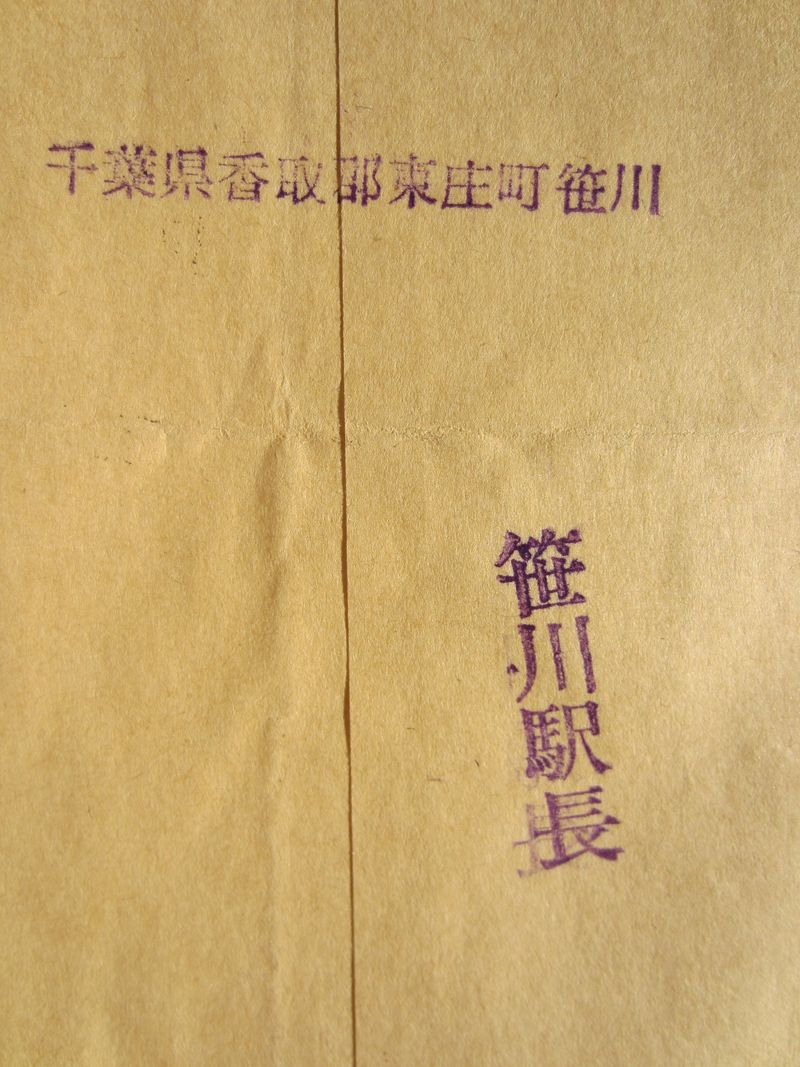 千葉県香取郡東庄町笹川
笹川駅長